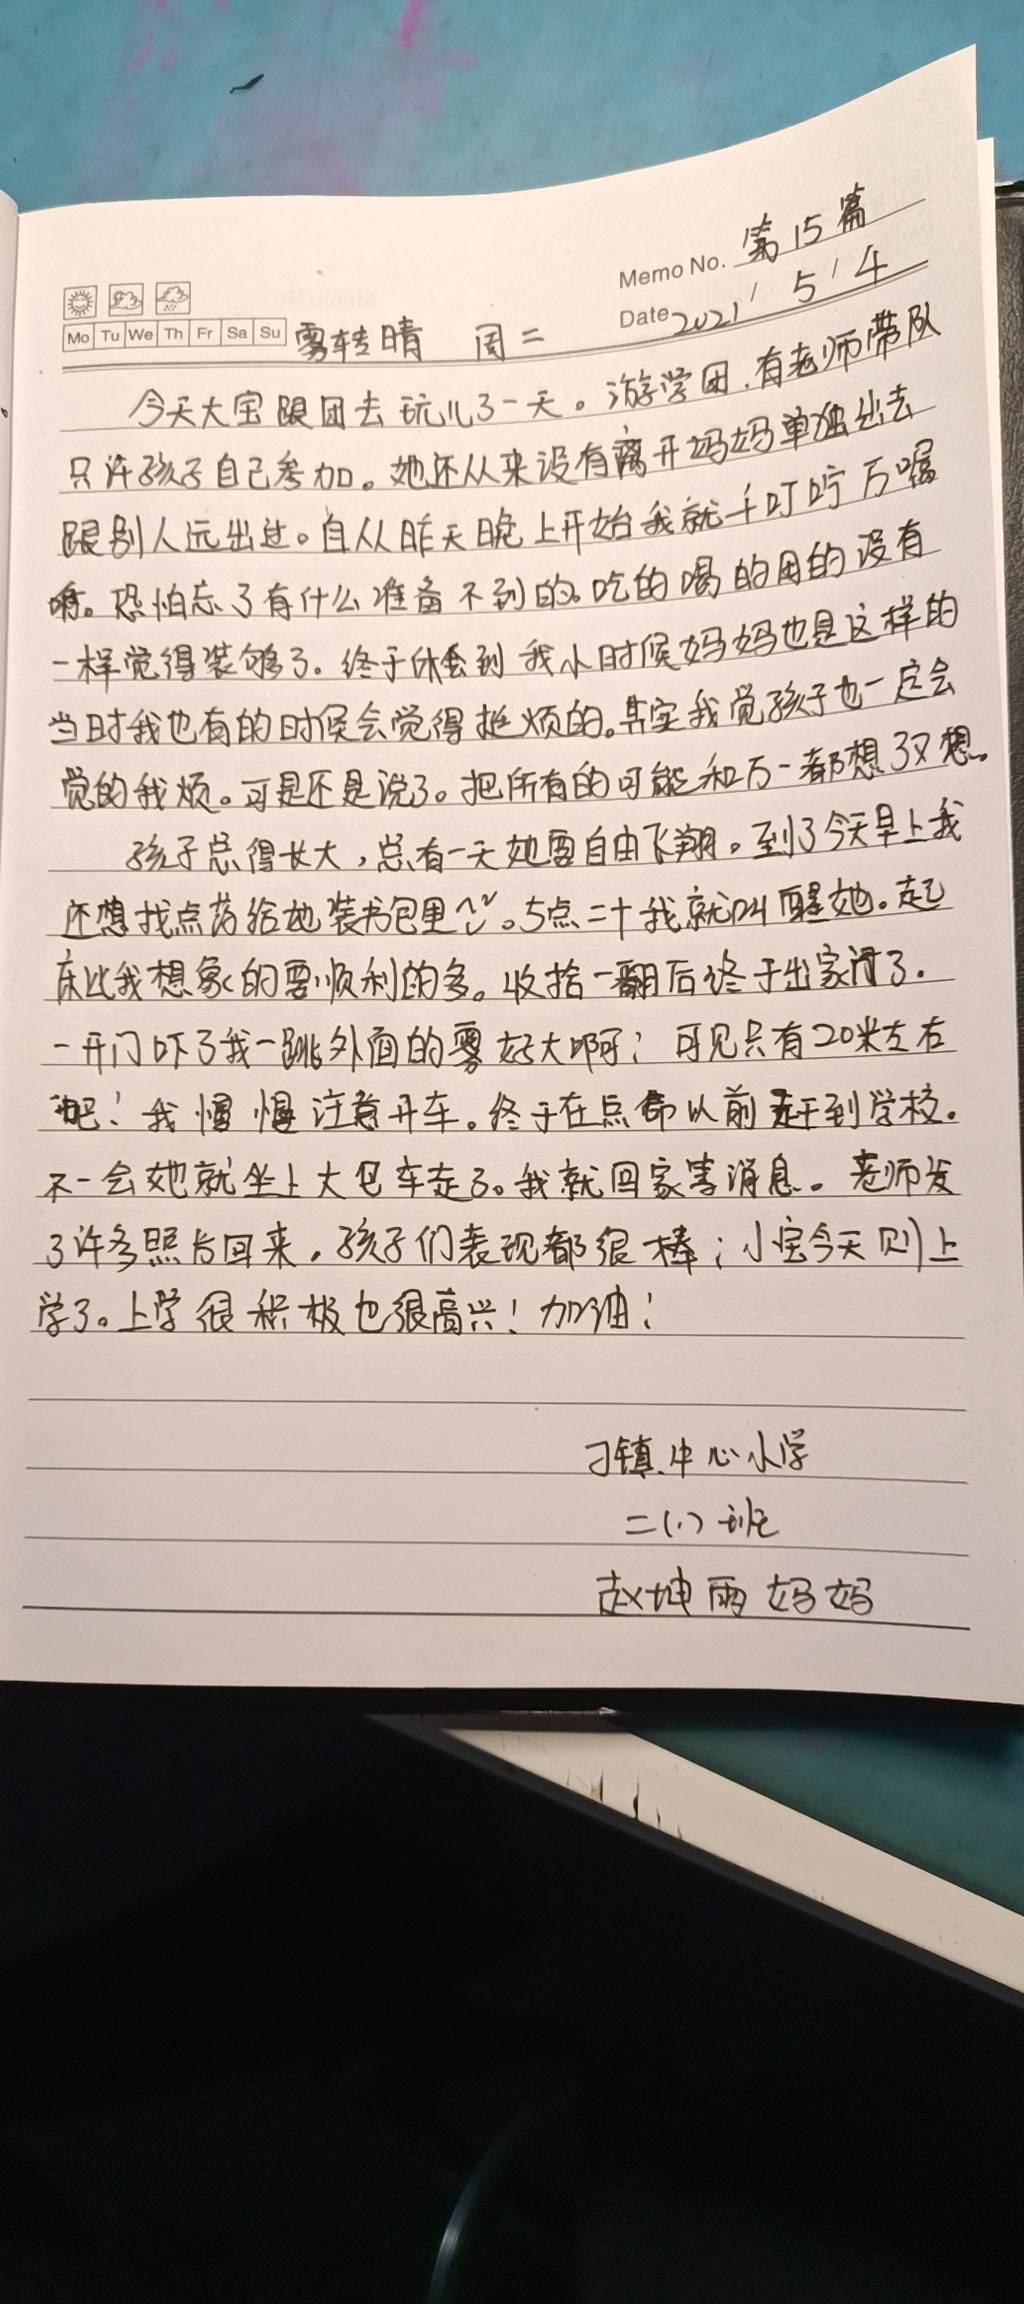 Memo No. 第15篇
Mo Tu We Th Fr Sa Su 雾转晴 周二 Date 2021/5/4
今天大宝跟团去玩儿了一天。游学团.有老师带队
只许孩子自己参加。她还从来没有离开妈妈单独出去
跟别人远出过。自从昨天晚上开始我就千叮咛万嘱
嘱。恐怕忘了有什么准备不到的。吃的喝的用的没有
一样觉得装够了.终于体会到我小时候妈妈也是这样的
当时我也有的时候会觉得挺烦的。其实我觉孩子也一定会
觉的我烦。可是还是说了。把所有的可能和万一都想了又想。
孩子总得长大,总有一天她要自由飞翔。到了今天早上我
还想找点药给她装书包里。5点二十我就叫醒她。起
床比我想象的要顺利的多。收拾一翻后终于出家门了.
一开门吓了我一跳外面的雾好大啊;可见只有20米左右
吧!我慢慢注意开车。终于在点命以前赶到学校。
不一会她就坐上大巴车走了。我就回家等消息。老师发
了许多照片回来.孩子们表现都很棒;小宝今天则上
学了。上学很积极也很高兴!加油!
刁镇.中心小学
二(1)班
赵坤雨妈妈